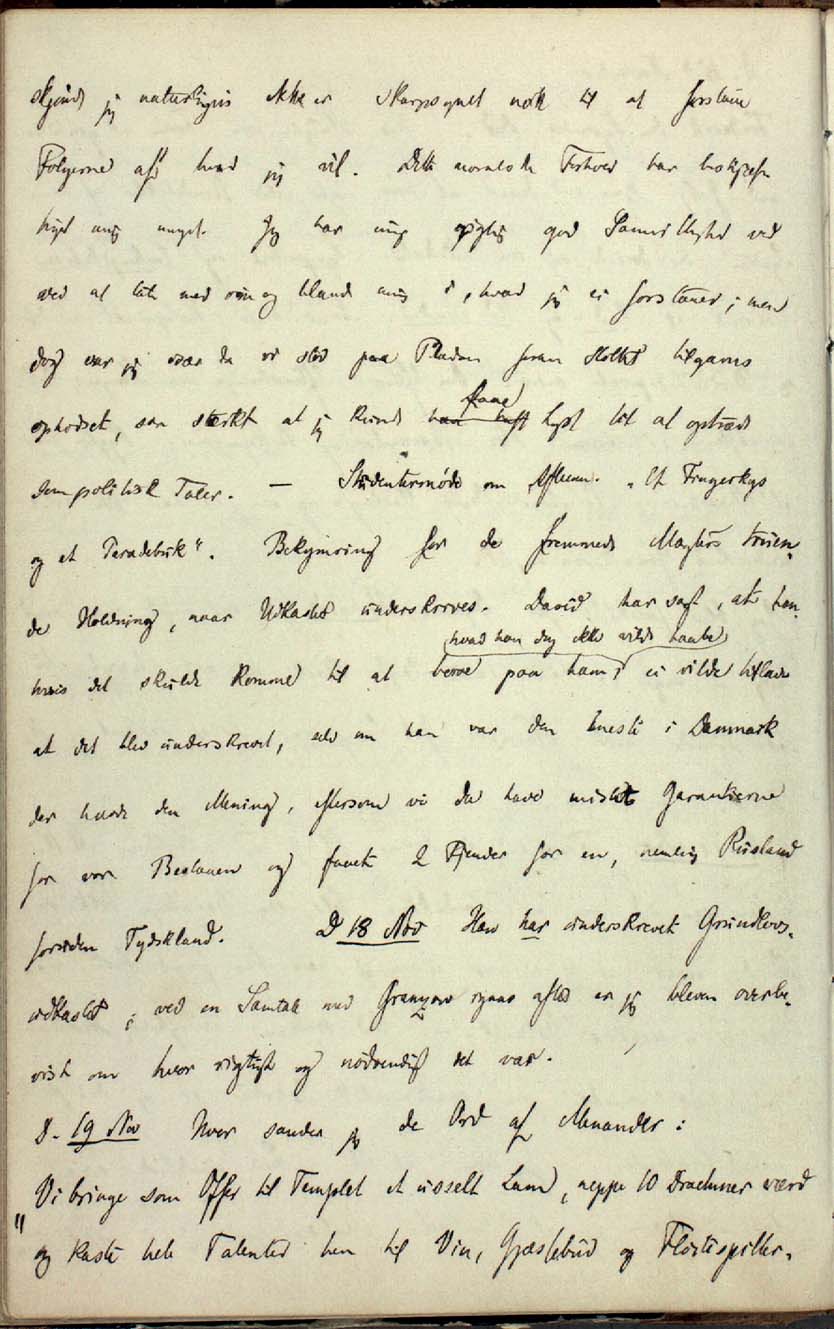 skjøndt jeg naturligvis ikke er skarpsynet nok til at forstaae
Følgerne af hvad jeg vil. Dette Forhold har
mig meget. Jeg har mig rigtig god Samvittighed ved
ved at tale med om og blande mig i, hvad jeg ei forstaaer; men
dog var jeg især da vi stod paa Pladsen foran Slottet
ophidset, saa stærkt at jeg kunde faae
haa haft Lyst til at optræde
som politisk Taler. — Studentermøde om Aftenen. "Et Fingerkys
og et Paradebuk". Bekymring for de fremmede Magters truen-
de Holdning, naar Udkastet underskrives. David har sagt, at han,
hvad han dog ikke vilde haabe
hvis det skulde komme til at beroe paa ham, ei vilde tillade
at det blev underskrevet, selv om han var den eneste i Danmark
der havde den Mening, eftersom vi da have mistet Garantierne
for vor Bestaaen og faaet 2 Fjender for en, nemlig Rusland
foruden Tydskland. D 18 Nov Han har underskrevet Grundlovs-
udkastet; ved en Samtale med igaar aftes er jeg bleven overbe-
vist om hvor rigtigt og nødvendigt det var.
D. 19 Nov Hvor sande jeg de Ord af Menander:
"Vi bringe som Offer til Templet et usselt Lam, neppe 10 Drachmer værd
og kaste hele Talenter hen til Vin, Gjæstebud og Fløitespiller-